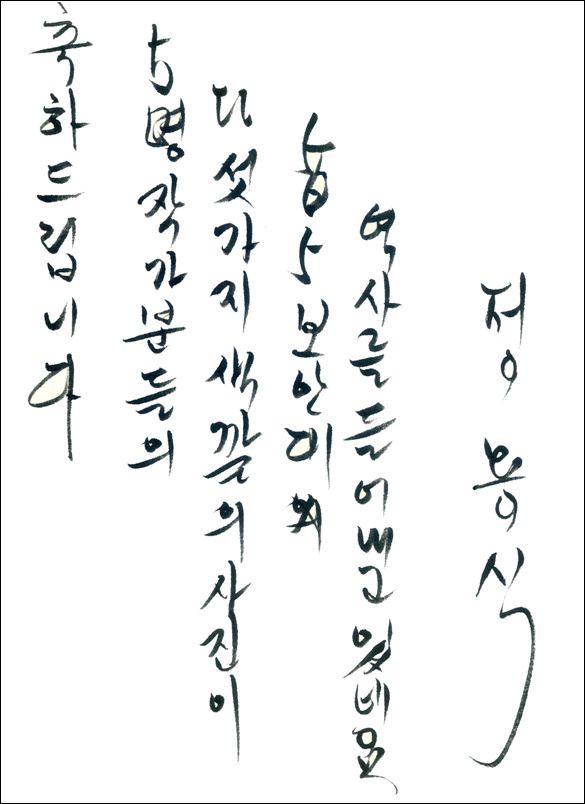 축하드립니다
5명작가분들의
다섯가지 색깔의 사진이
505보안대의
역사를 들어내고 있네요
정 식